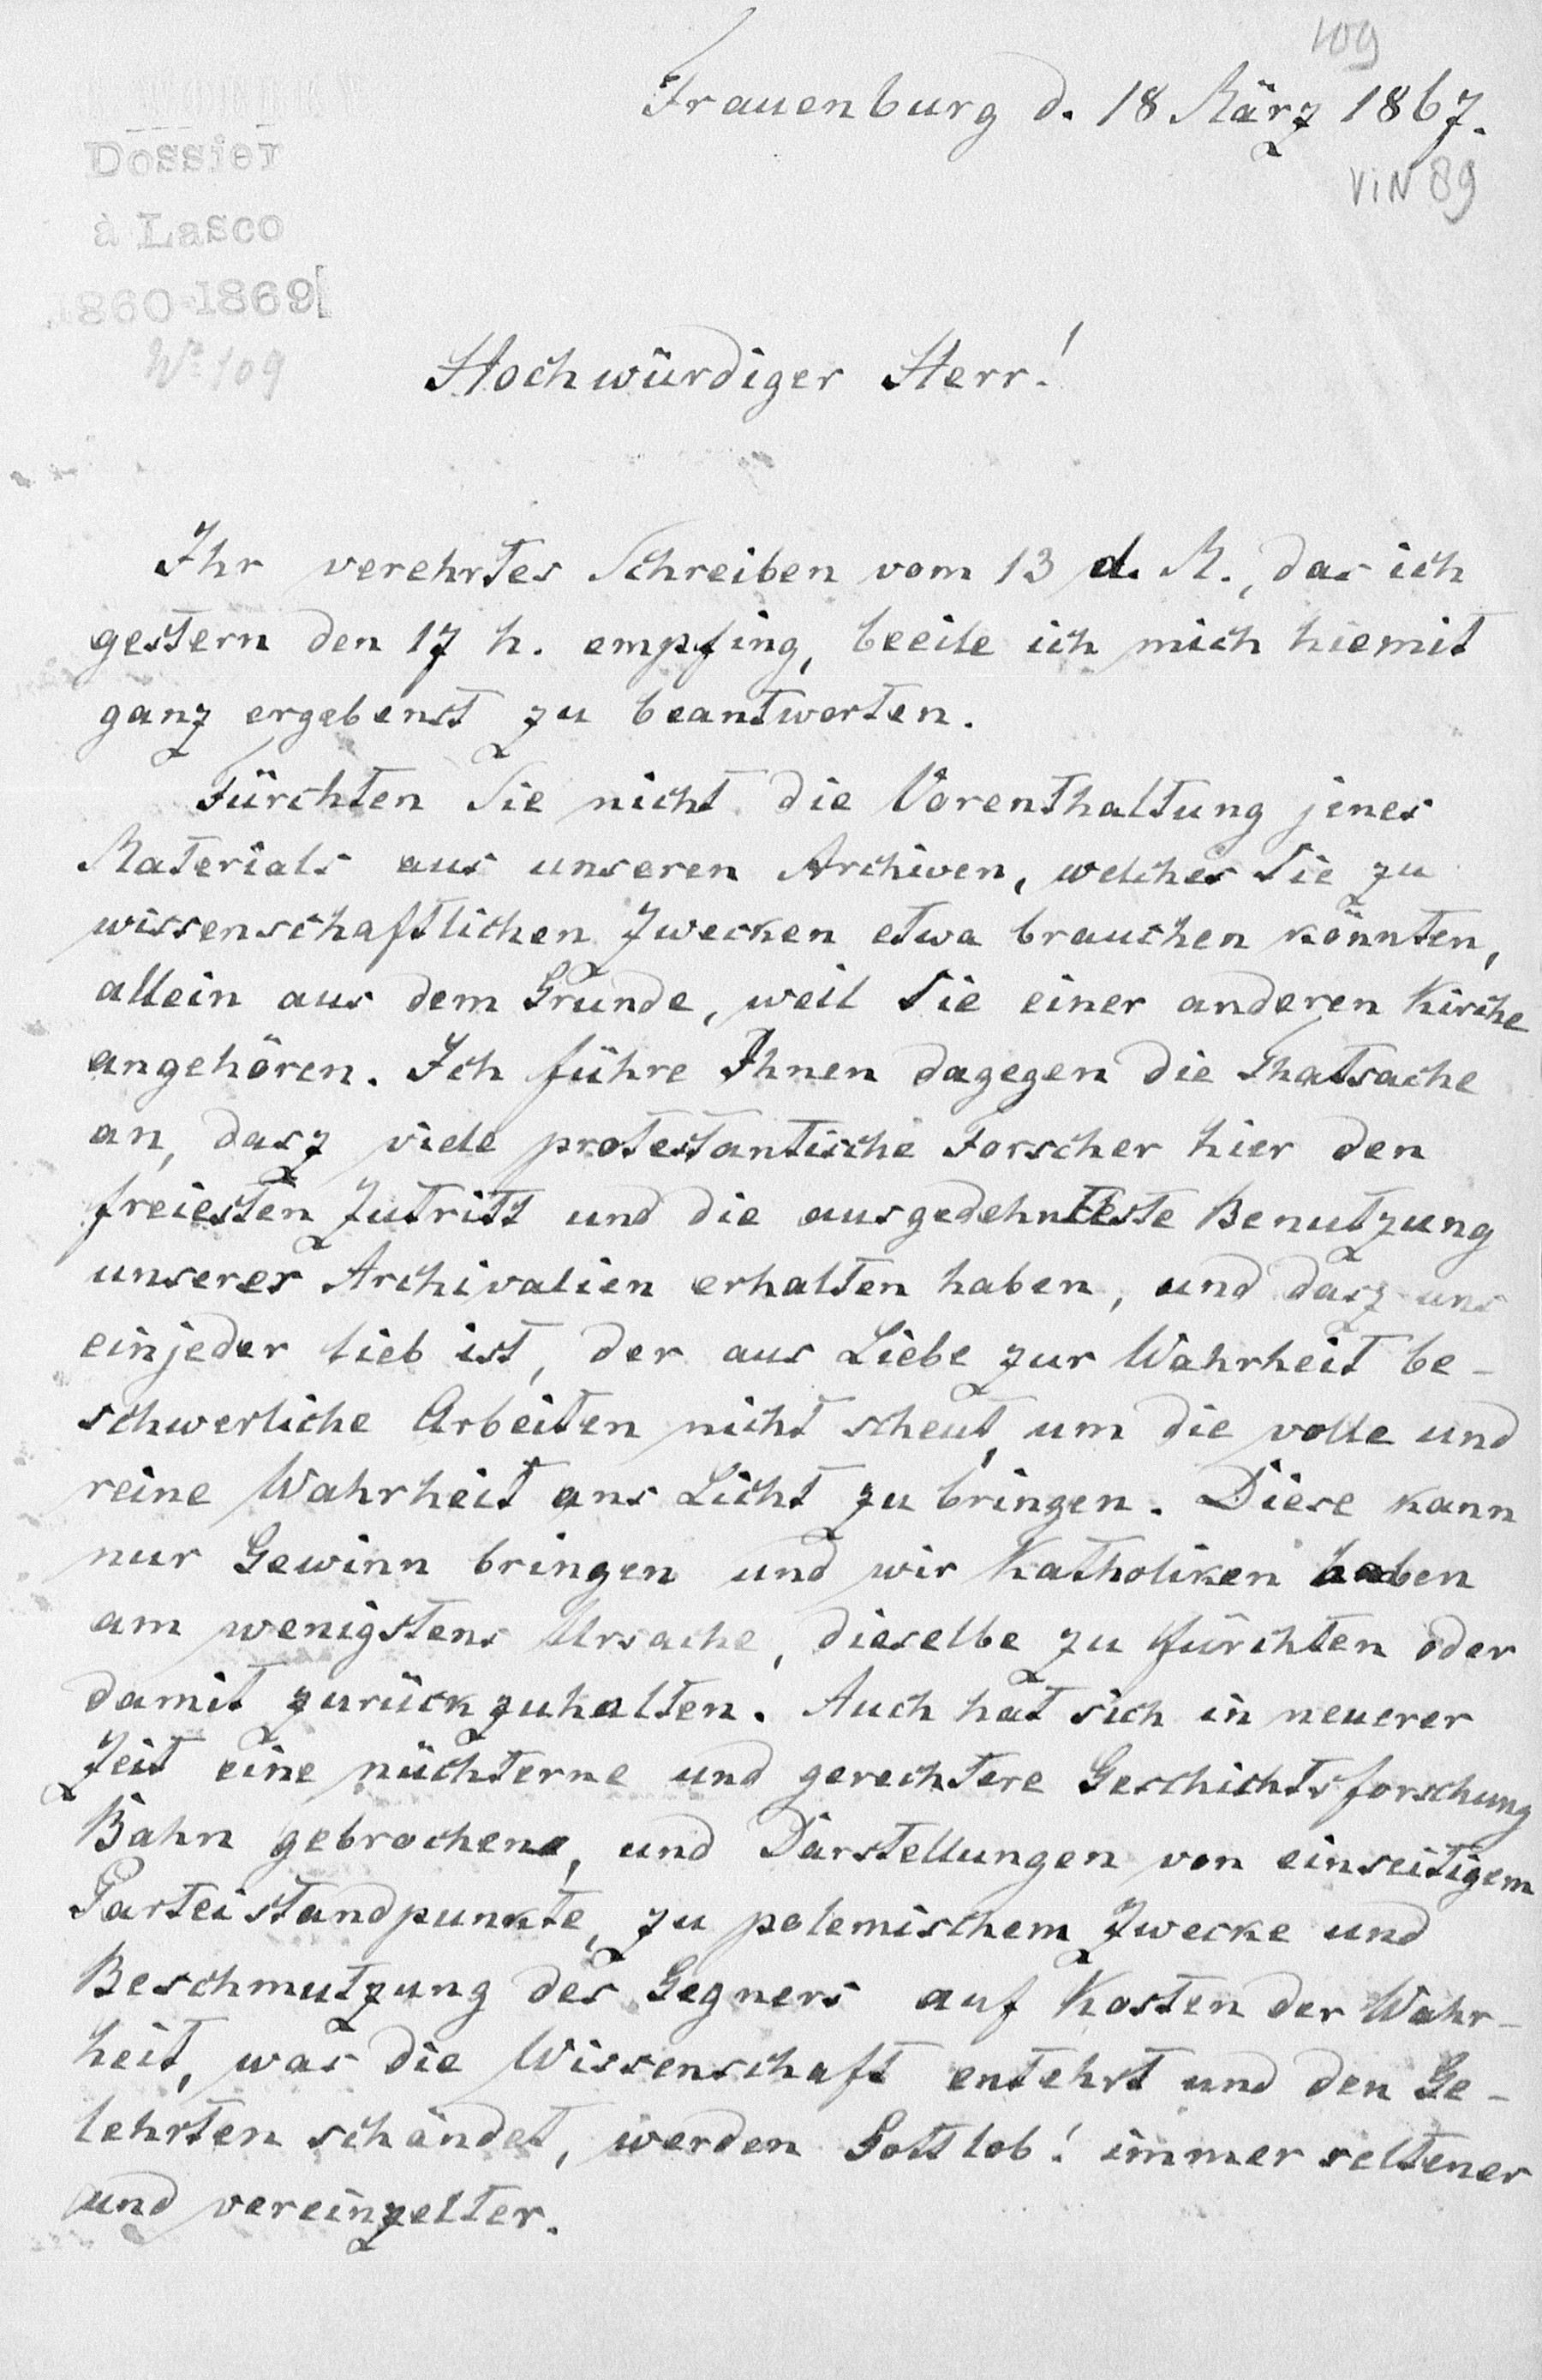 109
Frauenburg d. 18 März 1867.
VIN 89
Dossier
à Lasco
1860-1869
Nº 109
Hochwürdiger Herr!
Ihr verehrtes Schreiben vom 13 d. M., das ich
gestern den 17 h. empfing, beeile ich mich hiemit
ganz ergebenst zu beantworten.
Fürchten Sie nicht die Vorenthaltung jenes
Materials aus unseren Archiven, welches Sie zu
wissenschaftlichen Zwecken etwa brauchen könnten,
allein aus dem Grunde, weil Sie einer anderen Kirche
angehören. Ich führe Ihnen dagegen die Thatsache
an, dasz viele protestantische Forscher hier den
freiesten Zutritt und die ausgedehnteste Benutzung
unserer Archivalien erhalten haben, und dasz uns
einjeder lieb ist, der aus Liebe zur Wahrheit be-
schwerliche Arbeiten nicht scheut, um die volle und
reine Wahrheit ans Licht zu bringen. Diese kann
nur Gewinn bringen und wir Katholiken haben
am wenigstens Ursache, dieselbe zu fürchten oder
damit zurückzuhalten. Auch hat sich in neuerer
Zeit eine nüchterne und gerechtere Geschichtsforschung
Bahn gebrochen, und Darstellungen von einseitigem
Parteistandpunkte, zu polemischem Zwecke und
Beschmutzung des Gegners auf Kosten der Wahr-
heit, was die Wissenschaft entehrt und den Ge-
lehrten schändet, werden Gottlob! immer seltener
und vereinzelter.